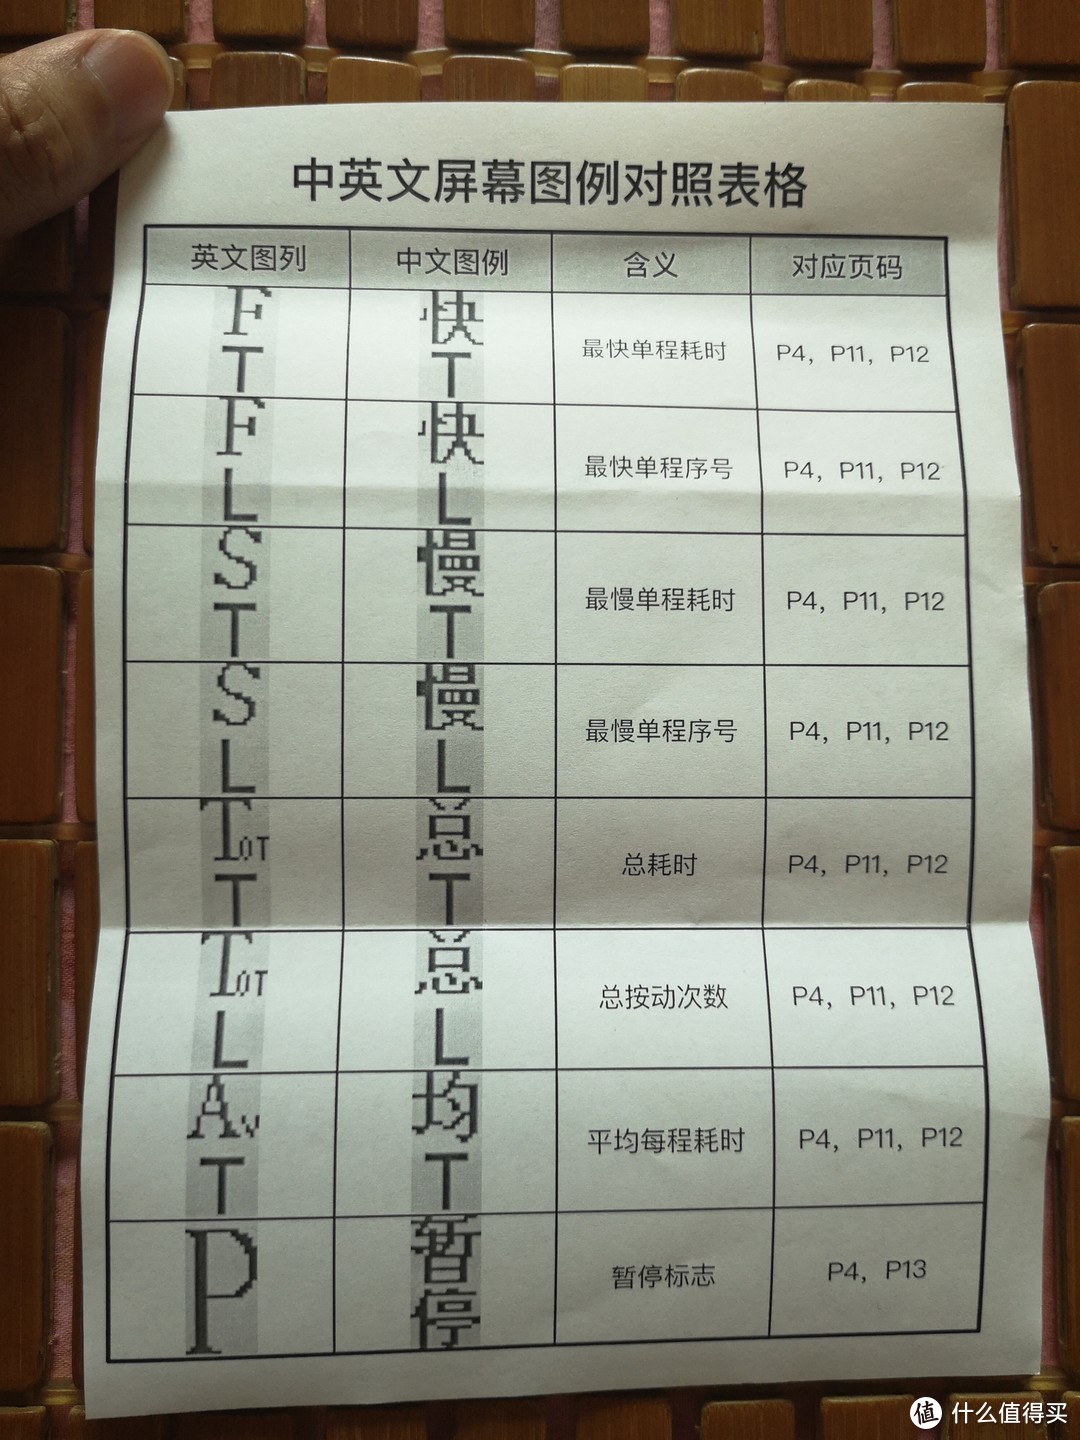 中英文屏幕图例对照表格
英文图列 中文图例 含义 对应页码
F
T
快
T
最快单程耗时 P4，P11，P12
F
L
快
L
最快单程序号 P4，P11，P12
S
T
慢
T
最慢单程耗时 P4，P11，P12
S
L
慢
L
最慢单程序号 P4，P11，P12
TOT
T
总
T
总耗时 P4，P11，P12
TOT
L
总
L
总按动次数 P4，P11，P12
Av
T
均
T
平均每程耗时 P4，P11，P12
P
暂
停
暂停标志 P4，P13
值 什么值得买